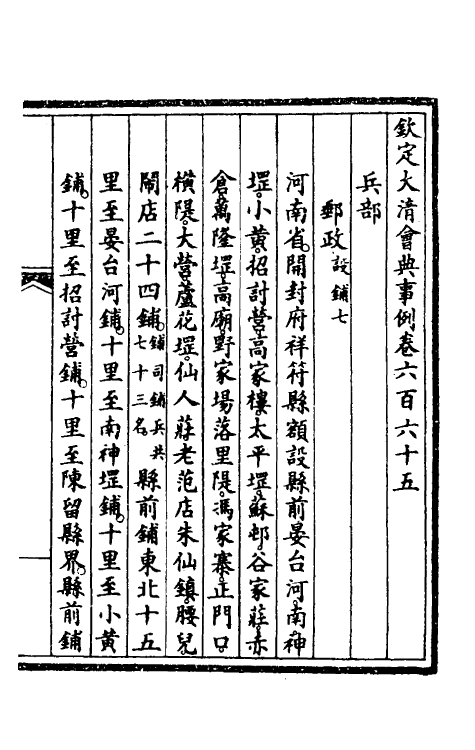 欽定大清會典事例卷六百六十五
兵部
郵政設鋪七
河南省。開封府祥符縣額設縣前晏台河。南神
堽。小黃。招討營。高家樓。太平堽。蘇邨。谷家莊。赤
倉。萬隆堽。高廟。野家場落里隄。馮家寨。正門口。
橫隄。大營。蘆花堽。仙人莊老范店朱仙鎮。腰兒
鬧店二十四鋪。鋪司鋪兵共七十三名。縣前鋪東北十五
里至晏台河鋪。十里至南神堽鋪。十里至小黃
鋪。十里至招討營鋪。十里至陳留縣界。縣前鋪